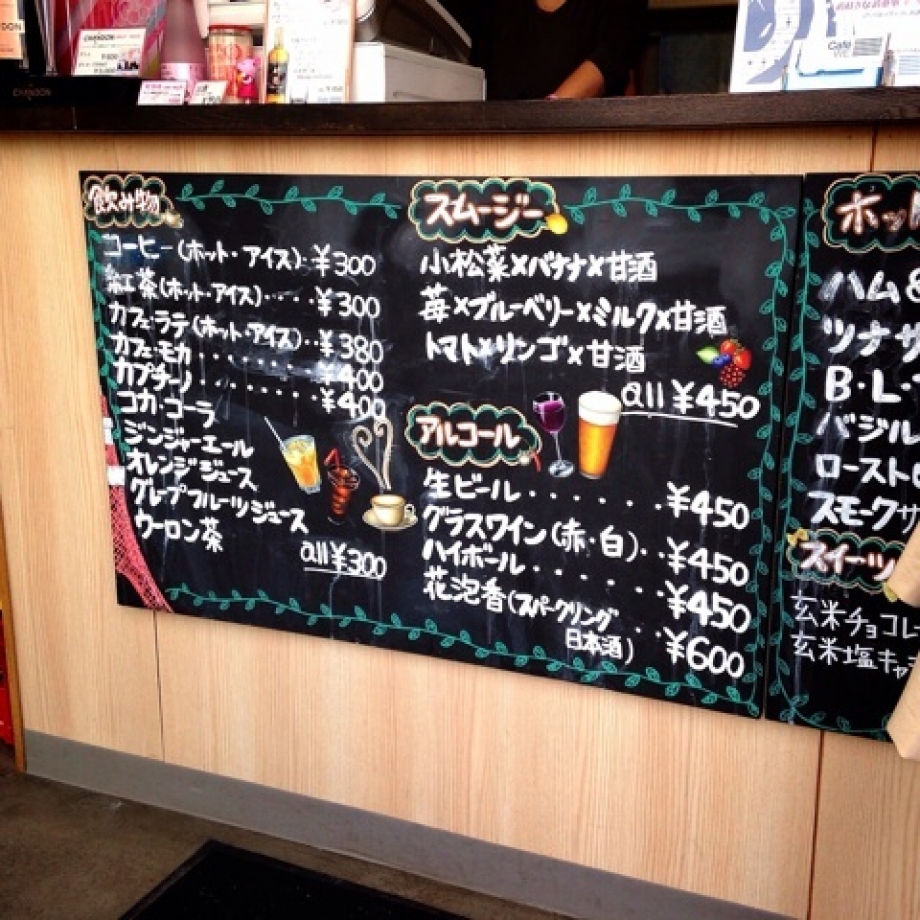 CHANDON
飲み物
コーヒー(ホット・アイス)‥¥300
紅茶(ホット・アイス)‥‥¥300
カフェ・ラテ(ホット・アイス)‥¥380
カフェ・モカ・・・・・・・¥400
カプチーノ・・・・・・・¥400
コカ・コーラ
ジンジャーエール
オレンジジュース
グレープフルーツジュース
ウーロン茶
all ¥300
スムージー
小松菜×バナナ×甘酒
苺×ブルーベリー×ミルク×甘酒
トマト×リンゴ×甘酒
all ¥450
アルコール
生ビール・・・・・・¥450
グラスワイン(赤・白)‥¥450
ハイボール・・・・・・¥450
花泡香(スパークリング
日本酒)‥¥600
ホッ
ハム&
ツナサ
B・L・
バジル
ロースト
スモークサ
スイーツ
玄米チョコレ
玄米塩キャ
Café